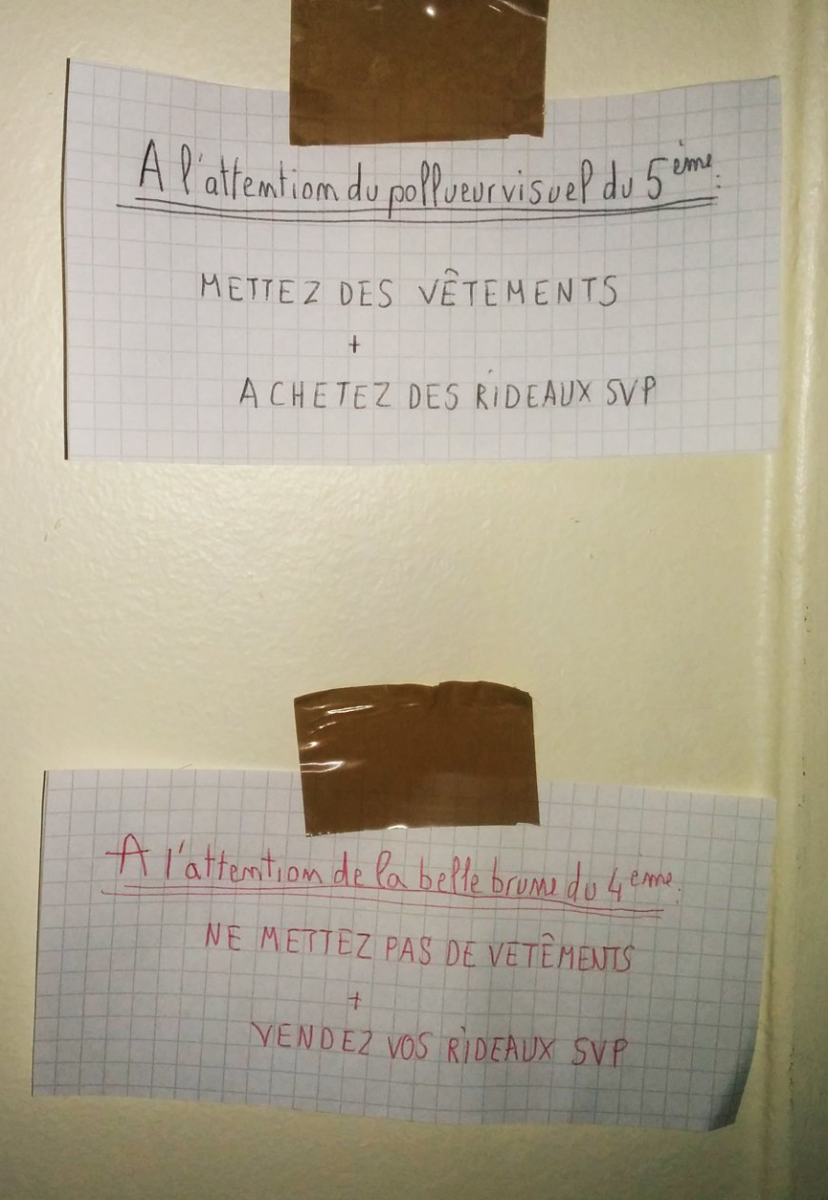 A l'attention du pollueur visuel du 5ème:
METTEZ DES VÊTEMENTS
+
ACHETEZ DES RIDEAUX SVP
A l'attention de la belle brune du 4ème:
NE METTEZ PAS DE VETÊMENTS
+
VENDEZ VOS RIDEAUX SVP